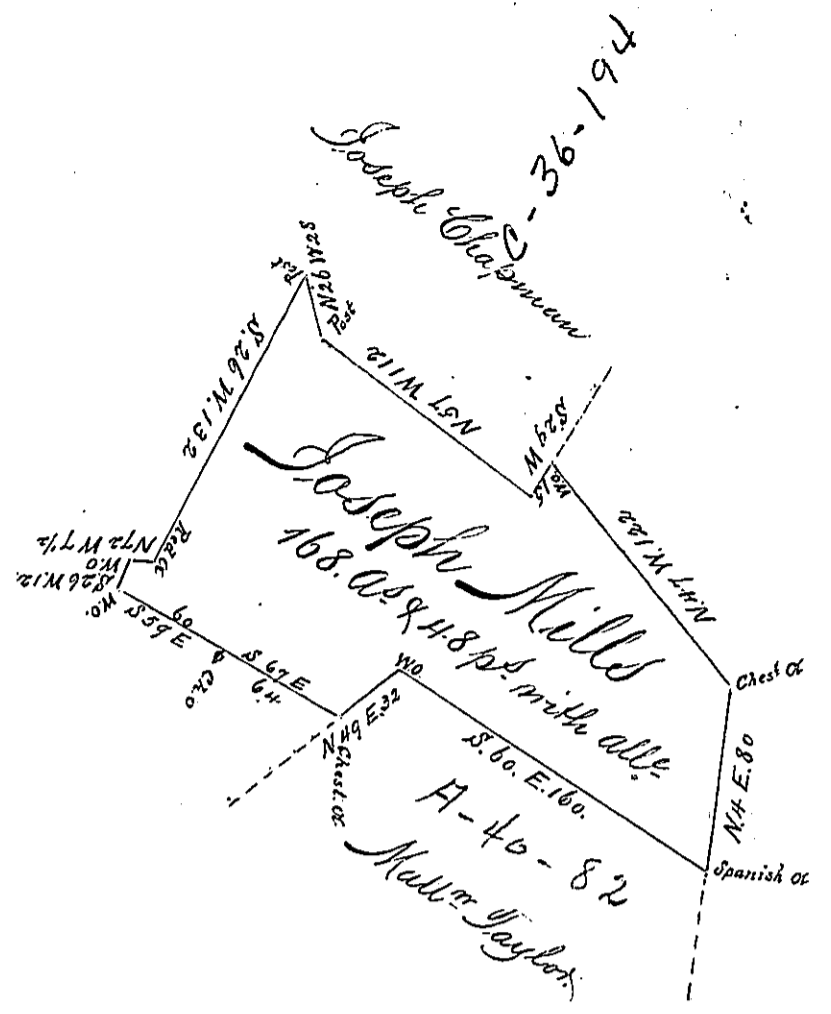 C-36-194
Joseph Chapman
Post
N26W28
Post
S.26 W.132
N57 W112
S29 W
15
W.O
N47 W.122
Joseph Mills
168. as & 48 ps. with alle.
Red O
N72 W 7½
W.O
S.26 W.12.
W.O.
S59 E
60
Ch.O
S 67 E
64
N49 E.32
Chest. O
W.O
S.60. E.160.
Chest O
N.4 E.80
Spanish O
A-40-82
Matt.w Taylor